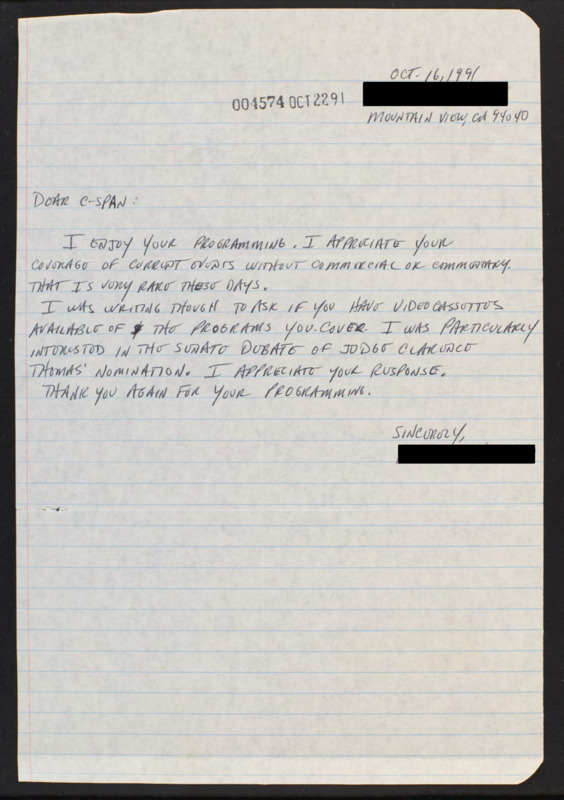 OCT. 16, 1991
004574 OCT 22 91
MOUNTAIN VIEW, CA 94040
DEAR C-SPAN:
I ENJOY YOUR PROGRAMMING. I APPRECIATE YOUR
COVERAGE OF CURRENT EVENTS WITHOUT COMMERCIAL OR COMMENTARY.
THAT IS VERY RARE THESE DAYS.
I WAS WRITING THOUGH TO ASK IF YOU HAVE VIDEOCASSETTES
AVAILABLE OF THE PROGRAMS YOU COVER I WAS PARTICULARLY
INTERESTED IN THE SENATE DEBATE OF JUDGE CLARENCE
THOMAS' NOMINATION. I APPRECIATE YOUR RESPONSE.
THANK YOU AGAIN FOR YOUR PROGRAMMING.
SINCERELY,